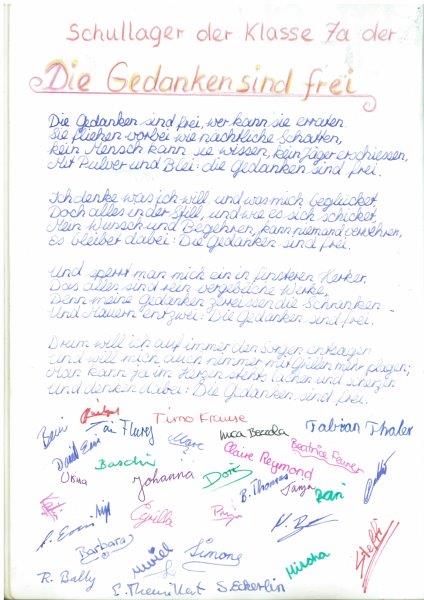 Schullager der Klasse 7a der
Die Gedanken sind frei
Die Gedanken sind frei, wer kann sie erraten
Sie fliehen vorbei wie nächtliche Schatten,
kein Mensch kann sie wissen, kein Jäger erschiessen,
Mit Pulver und Blei: die Gedanken sind frei.
Ich denke was ich will und was mich beglücket,
Doch alles in der Still, und wie es sich schicket.
Mein Wunsch und Begehren, kann niemand verwehren,
Es bleibet dabei: Die Gedanken sind frei.
Und sperrt man mich ein in finsteren Kerker,
Das alles sind rein vergebliche Werke,
Denn meine Gedanken zerreissen die Schranken
Und Mauern entzwei: Die Gedanken sind frei.
Drum will ich auf immer den Sorgen entsagen
und will mich auch nimmer mit Grillen mehr plagen;
Man kann ja im Herzen stets lachen und scherzen
und denken dabei: Die Gedanken sind frei.
Timo Krause
Fabian Thaler
Luca
Claire Reymond
Baschi
Johanna
Doris
B. Thommes
Tanja
Barbara
Muriel
Simone
Mischa
Steffi
R. Bally
S. Eckerlin